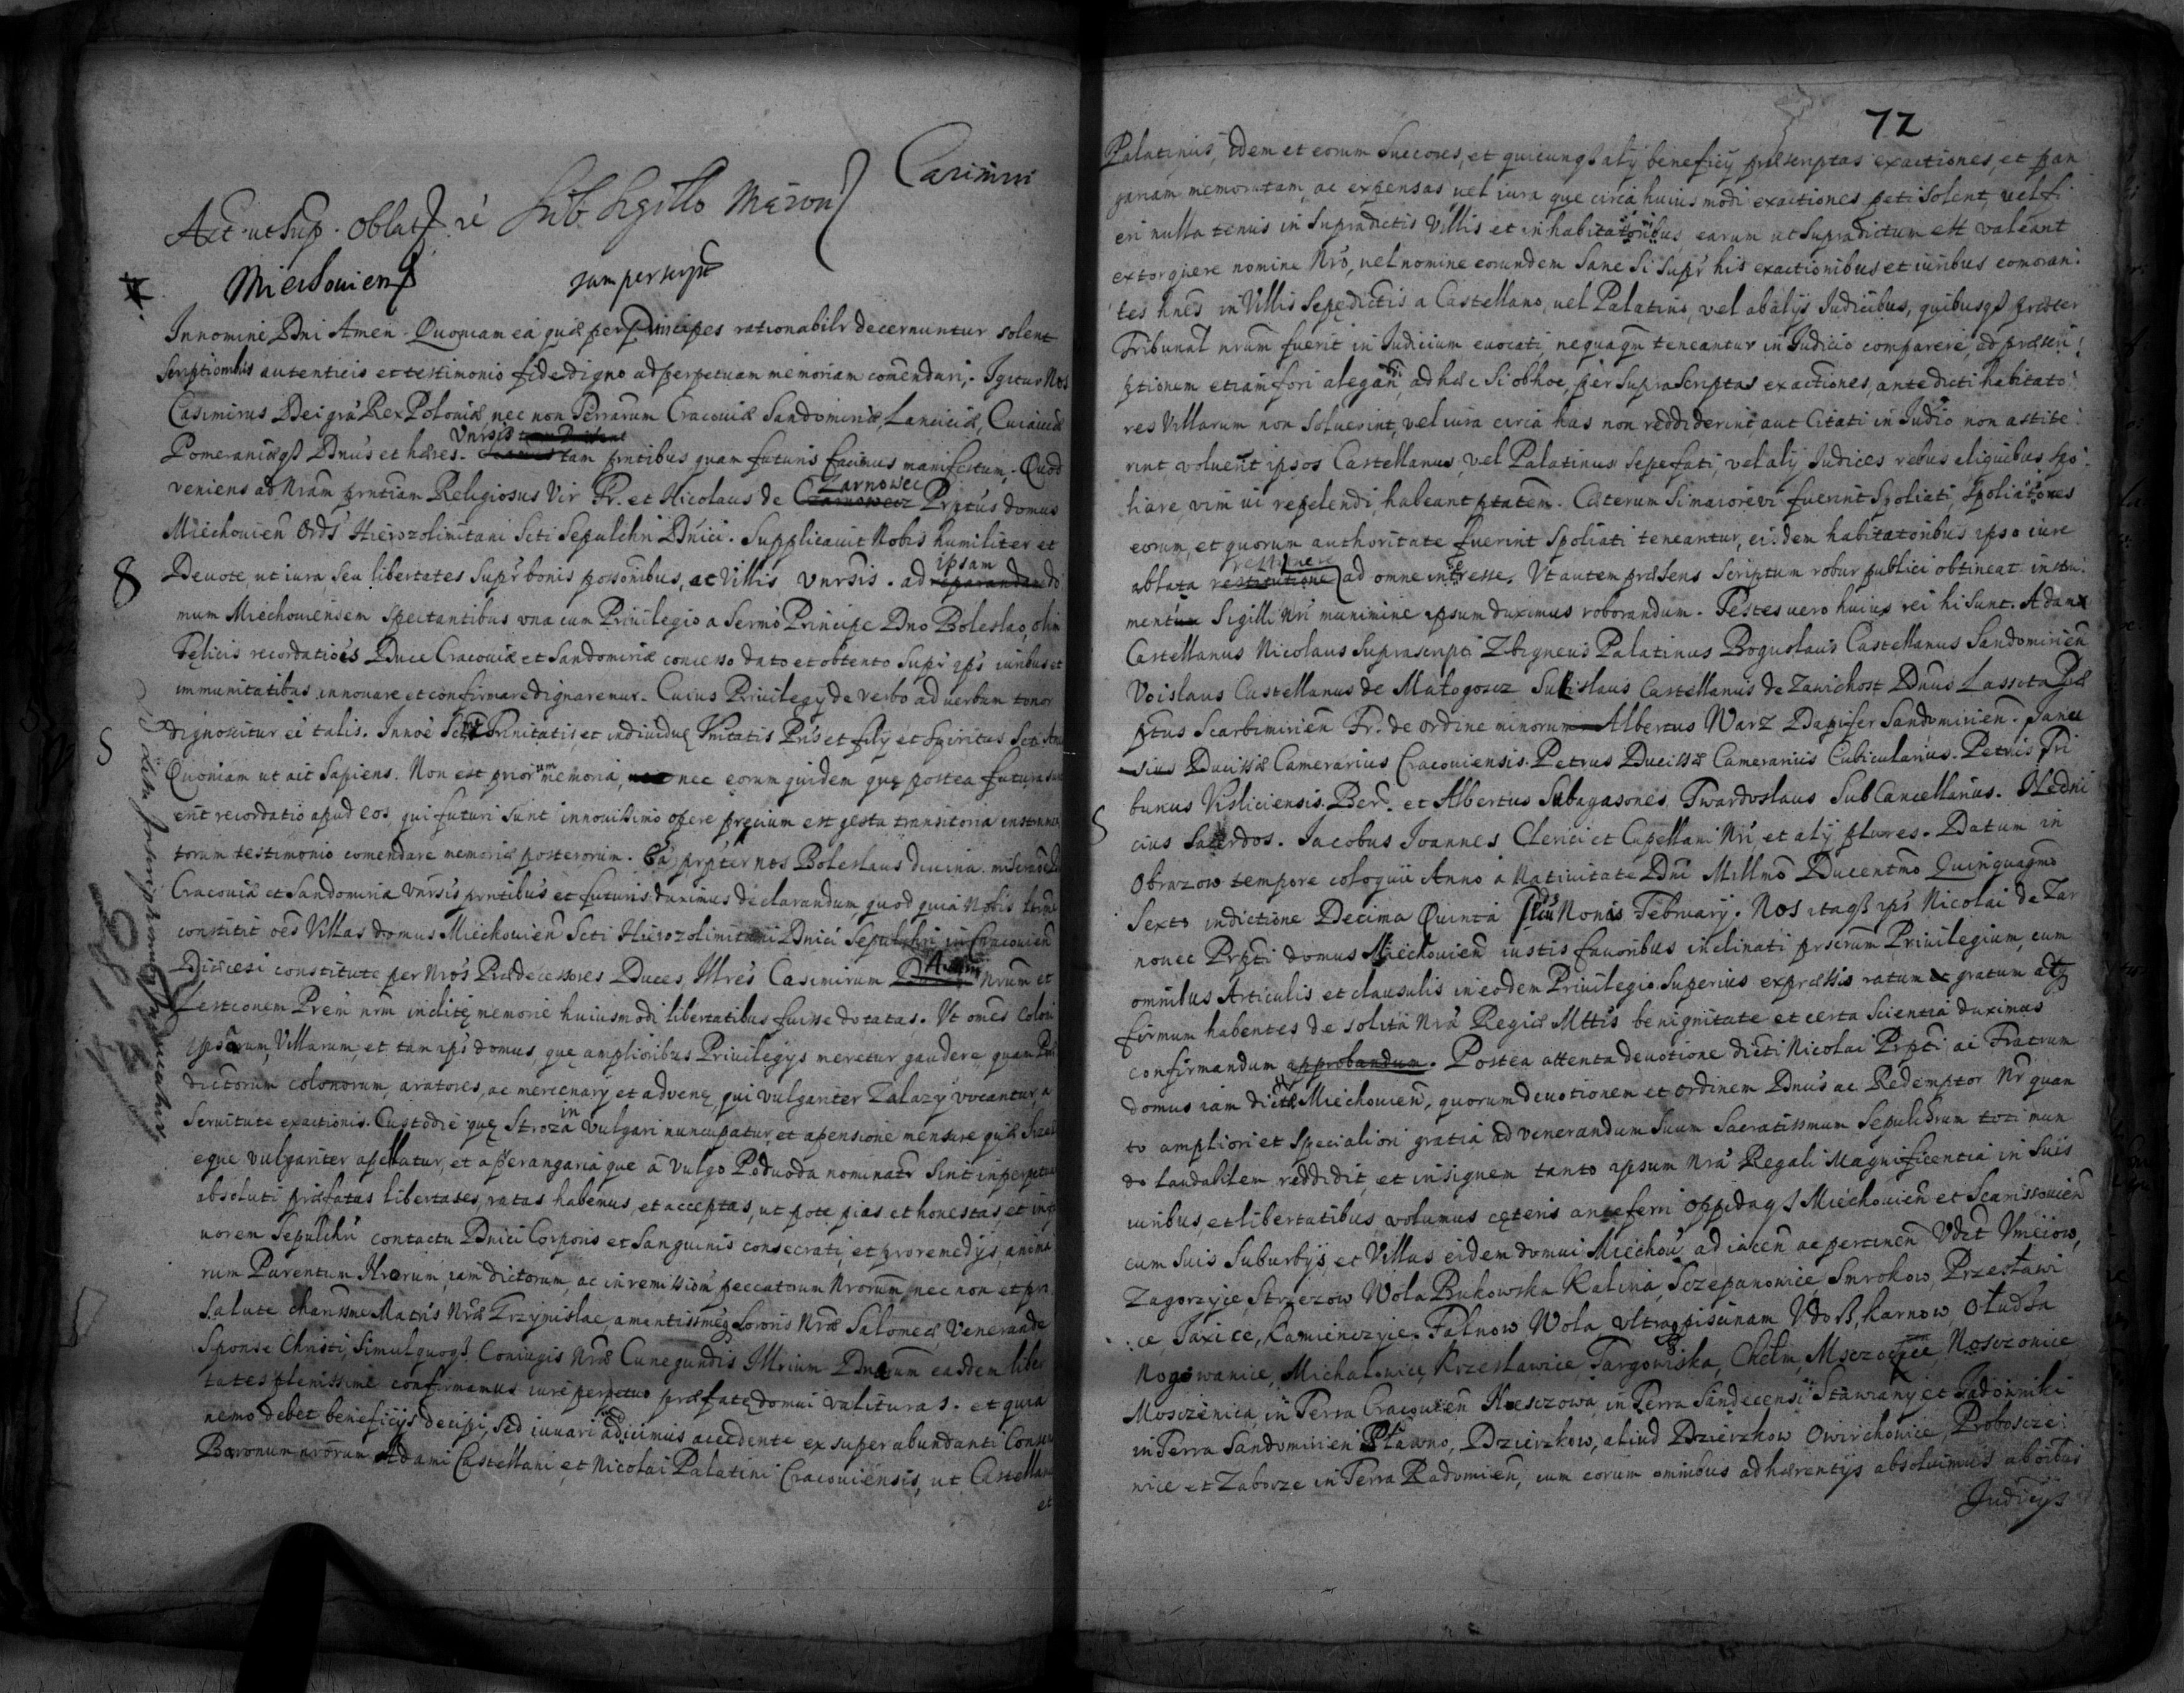 Casimiri
Act. ut sup. Oblat. ē Sub Sigillo Maiori
Miechouien. iam perscript
Innomine Dni Amen. Quoniam ea quæ per Principes rationabilr decernuntur solent
scriptionibus autenticis et testimonio fidedigno ad perpetuam memoriam comendari. Igitur Nos
Casimirus Dei gra Rex Poloniæ, nec non Terrarum Cracouiæ Sandomiriæ, Lanciciæ, Cuiauiæ
Pomeraniæq3 Dnus et hæres. Vnrsis tam pntibus quam futuris facimus manifestum. Quod
veniens ad Nram pntiam Religiosus Vir Fr. et Nicolaus de Czarnowecz Zarnowec Prptus domus
Miechouien Ords Hierozolimitani Scti Sepulchri Dnici. Supplicauit Nobis humiliter et
8 Deuote, ut iura seu libertates supr bonis possonibus, ac Villis Vnrsis. ad reparandam ipsam do
mum Miechouiensem spectantibus vna cum Priuilegio a Sermo Principe Dno Boleslao, olim
Felicis recordatiois Duce Cracouiæ et Sandomiriæ concesso dato et obtento Supr ips iuribus et
immunitatibus innouare et confirmare dignaremur. Cuius Priuilegy de verbo ad verbum tenor
dignoscitur ei talis. Innoe Scte Trinitatis, et indiuiduę Vnitatis Pris et fily et Spiritus Scti
Quoniam ut ait Sapiens. Non est priorum memoria, nec eorum quidem quę postea futura
erit recordatio apud eos, qui futuri sunt innouissimo opere precium est gesta transitoria instrumen
torum testimonio comendare memoriæ posterorum. Ea prpter nos Boleslaus diuina
Cracouiæ et Sandomiriæ Vnrsis pntibus et futuris duximus declarandum, quod quia Nobis
constitit oes Villas domus Miechouien Scti Hierozolimitani Dnici Sepulchri in Cracouien
Diæcesi constitute per Nros Prædecessores Duces, Illres Casimirum Auum Nrum et
Lestconem Prem nrm inclitę memorie huiusmodi libertatibus fuisse dotatas. Vt omes Coloni
ipsarum Villarum, et tam ips domus, quę amplioribus Priuilegys meretur gaudere quam
dictorum colonorum, aratores, ac mercenary et aduenę, qui vulgariter Zalazy vocantur, a
Seruitute exactionis. Custodie quę Stroza in Vulgari nuncupatur et apensione mensure quæ
eque vulgariter apellatur, et aperangaria que a vulgo Poduoda nominatr Sint inperpetuum
absoluti præfatas libertates, ratas habemus, et acceptas, ut pote pias et honestas, et in
uorem Sepulchri contactu Dnici Corporis et Sanguinis consecrati, et pro remedys, anima
rum Parentum Nrorum, iam dictorum, ac in remission peccatorum Nrorum, nec non et pro
Salute charissme Matris Nræ Grzymislae, amantissmeq3 Sororis Nræ Salomeæ Venerande
Sponse Christi, Simulquoq3 Coniugis Nræ Cunegundis Illrium Dnarum easdem liber
tates plenissime confirmamus iure perpetuo præfatę domui valituras. et quia
nemo debet beneficys decipi, sed iuuari adicimus accedente ex super abundanti Consen
Baronum nrorum Adami Castellani et Nicolai Palatini Cracouiensis, ut Castellanus
et
72
Palatinus, idem et eorum Succores, et quicunq3 aly beneficy præscriptas exactiones, et pan
gariam memoratam, ac expensas, uel iura que circa huiusmodi exactiones peti solent, vel fi
eri nulla tenus in Supradictis Villis et inhabitatoribus earum ut Supradictum est valeant
extorquere nomine Nro, uel nomine eorundem Sane Si Supr his exactionibus et iuribus comoran
tes hnes in Villis Sepedictis a Castellano, uel Palatino, vel abalijs Iudicibus, quibusq3 præter
Tribunal nrum fuerit in Iudicium euocati, nequaqm teneantur in Iudicio comparere, ad præscri
ptionem etiam fori alegandi, ad hæc Si obhoc, per supra scriptas exactiones, ante dicti habitato
res Villarum non Soluerint, vel iura circa has non reddiderint, aut Citati in Iudio non astite
rint voluerit ipsos Castellanus, vel Palatinus Sepefati, vel aly Iudices rebus eliquibus spo
liare, vim vi repelendi, habeant ptatem. Cæterum Si maiore vi fuerint Spoliati, Spoliatores
eorum, et quorum authoritate fuerint Spoliati teneantur, eisdem habitatoribus ipso iure
ablata restitutione restituere ad omne interesse. Vt autem præsens Scriptum robur publici obtineat instru
mentum Sigilli Nri munimine ipsum duximus roborandum. Testes uero huius rei hi Sunt. Adam
Castellanus Nicolaus Suprascripti Zbigneus Palatinus Boguslaus Castellanus Sandomirien
Voislaus Castellanus de Małogoscz Sulislaus Castellanus de Zawichost Dnus Lassota Præ
ptus Scarbimirien Fr. de ordine minorum Albertus Warz Dapifer Sandomirien. Janu
sius Ducissæ Camerarius Cracouiensis. Petrus Ducissæ Camerarius Cubicularius. Petrus Tri
bunus Visliciensis. Ber. et Albertus Subagasones Twardoslaus Sub Cancellarius. Nedni
cius Sacerdos. Jacobus Joannes Clerici et Capellani Nri et aly plures. Datum in
Obrazow tempore coloquii Anno a Natiuitate Dni Millmo Ducentmo Quinquagmo
Sexto indictione Decima Quinta Nonis February. Nos itaq3 ips Nicolai de Zar
nouec Prpti domus Miechouien iustis fauoribus inclinati prscrum Priuilegium, cum
omnibus Articulis et clausulis in eodem Priuilegio Superius expræssis ratum et gratum atq3
firmum habentes de solita Nra Regiæ Mttis benignitate et certa Scientia duximus
confirmandum approbandum. Postea attenta deuotione dicti Nicolai Prpti ac Fratrum
domus iam dictæ Miechouien, quorum deuotionem et ordinem Dnus ac Redemptor Nr quan
to ampliori et Specialiori gratia ad venerandum Suum Sacratissmum Sepulchrum toti mun
do laudabilem reddidit, et insignem tanto ipsum Nra Regali Magnificentia in Suis
iuribus, et libertatibus, volumus cęteris anteferri Oppidaq3 Miechouien et Scarissouien
cum Suis Suburbys, et Villas eidem domui Miechou ad iacen ac pertinen Vdlt Vnieiow,
Zagorzyce Strzezow Wola Bukowska Kalina, Sczepanowice, Smrokow, Przesławi
ce, Jaxice, Kamienczyie, Falnow, Wola ultra piscinam Vdoß, Karnow, Otudza
Nogowanice, Michałowice, Krzesławice Targowiska, Chełm, Nosczonice
Moscizenica in Terra Cracouien in Terra Sandecensi Stawiany et Jadowniki
in Terra Sandomirien Pławno, Dzierzkow, aliud Dzierzkow Owirchowice, Proboscze
nice et Zaborze in Terra Radomien, cum eorum omnibus adhærentys absoluimus ab oibus
Judicys